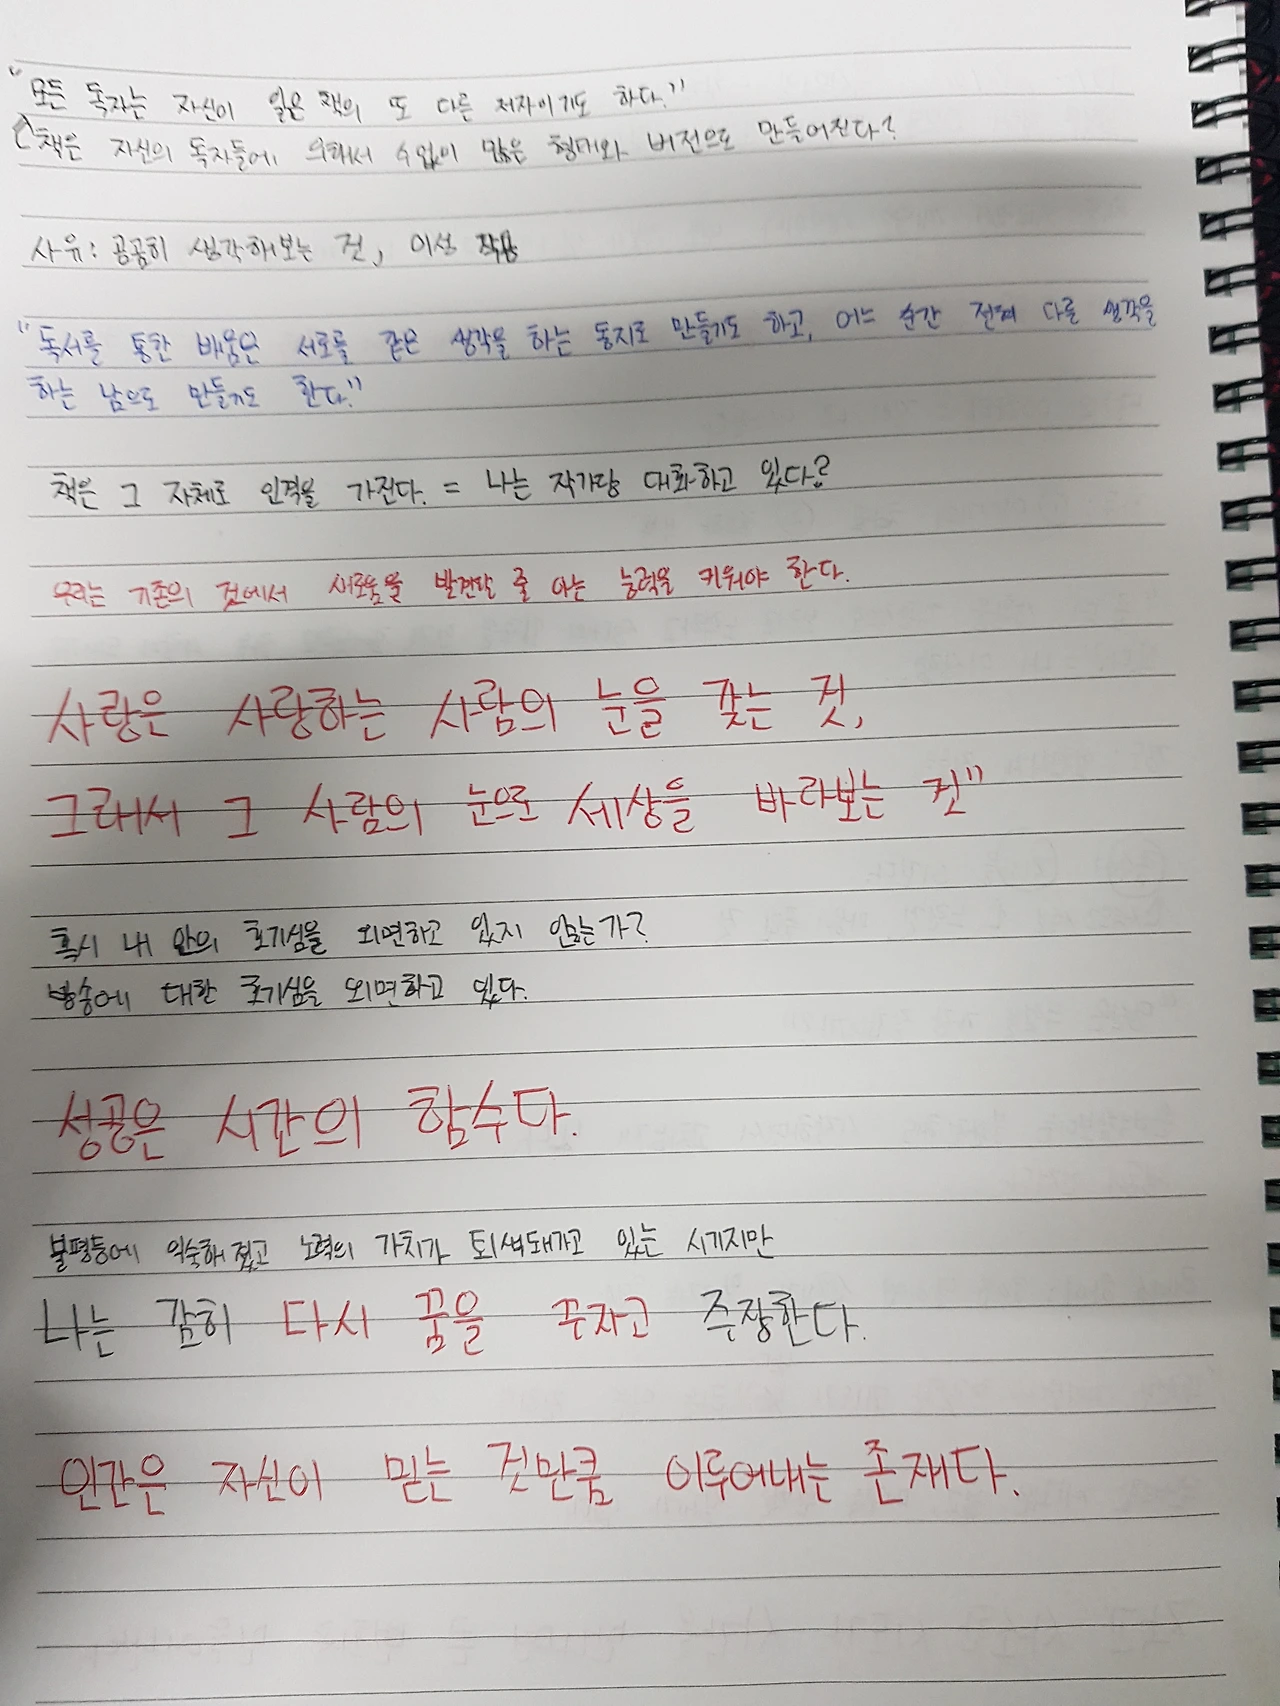 "모든 독자는 자신이 읽은 책의 또 다른 저자이기도 하다."
책은 자신의 독자들에 의해서 수없이 많은 형태와 버전으로 만들어진다?
사유: 곰곰히 생각해보는 것, 이성 작용
"독서를 통한 배움은 서로를 같은 생각을 하는 동지로 만들기도 하고, 어느 순간 전혀 다른 생각을
하는 남으로 만들기도 한다."
책은 그 자체로 인격을 가진다. = 나는 작가랑 대화하고 있다?
우리는 기존의 것에서 새로움을 발견할 줄 아는 능력을 키워야 한다.
사랑은 사랑하는 사람의 눈을 갖는 것,
그래서 그 사람의 눈으로 세상을 바라보는 것"
혹시 내 안의 호기심을 외면하고 있지 않는가?
방송에 대한 호기심을 외면하고 있다.
성공은 시간의 함수다.
불평등에 익숙해졌고 노력의 가치가 퇴색돼가고 있는 시기지만
나는 감히 다시 꿈을 꾸자고 주장한다.
인간은 자신이 믿는 것만큼 이루어내는 존재다.